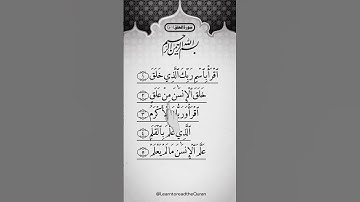 سورة العلق
بِسْمِ ٱللَّهِ ٱلرَّحْمَٰنِ ٱلرَّحِيمِ
ٱقْرَأْ بِٱسْمِ رَبِّكَ ٱلَّذِي خَلَقَ ١
خَلَقَ ٱلْإِنسَٰنَ مِنْ عَلَقٍ ٢
ٱقْرَأْ وَرَبُّكَ ٱلْأَكْرَمُ ٣
ٱلَّذِي عَلَّمَ بِٱلْقَلَمِ ٤
عَلَّمَ ٱلْإِنسَٰنَ مَا لَمْ يَعْلَمْ ٥
@LearntoreadtheQuran